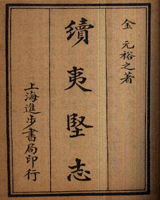 金 元裕之著
續夷堅志
上海進步書局印行